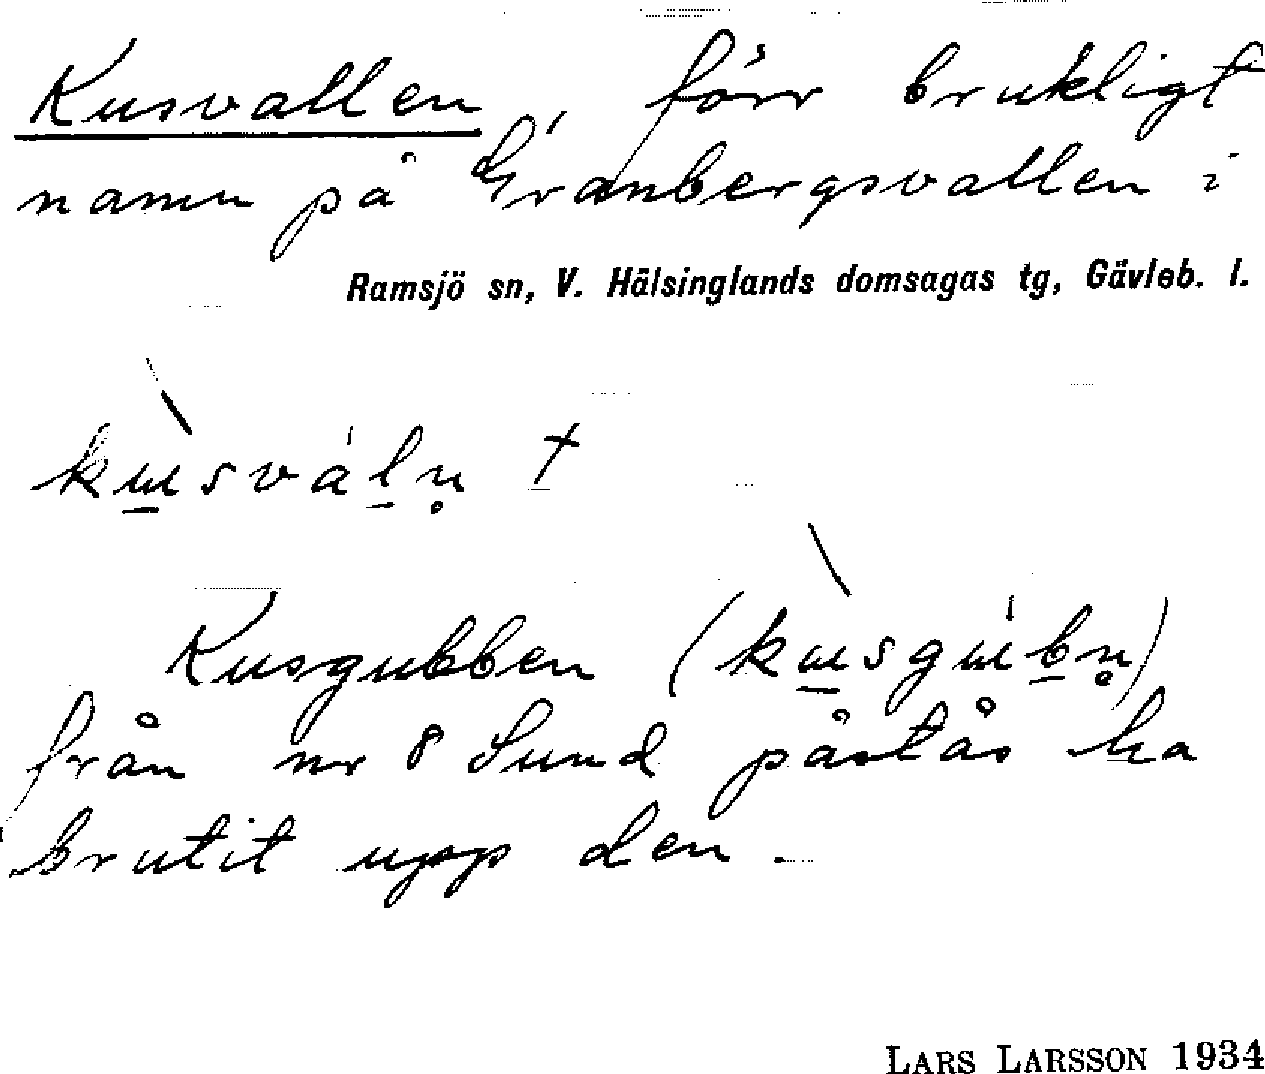 Kusvallen, förr brukligt
namn på Granbergsvallen i
Ramsjö sn, V. Hälsinglands domsagas tg, Gävleb. l.
kɯ̲̀svál̲n̥ †
Kusgubben (kɯ̲̀sgɯ́b̲n̥)
från nr 8 Sund påstås ha
brutit upp den.
LARS LARSSON 1934